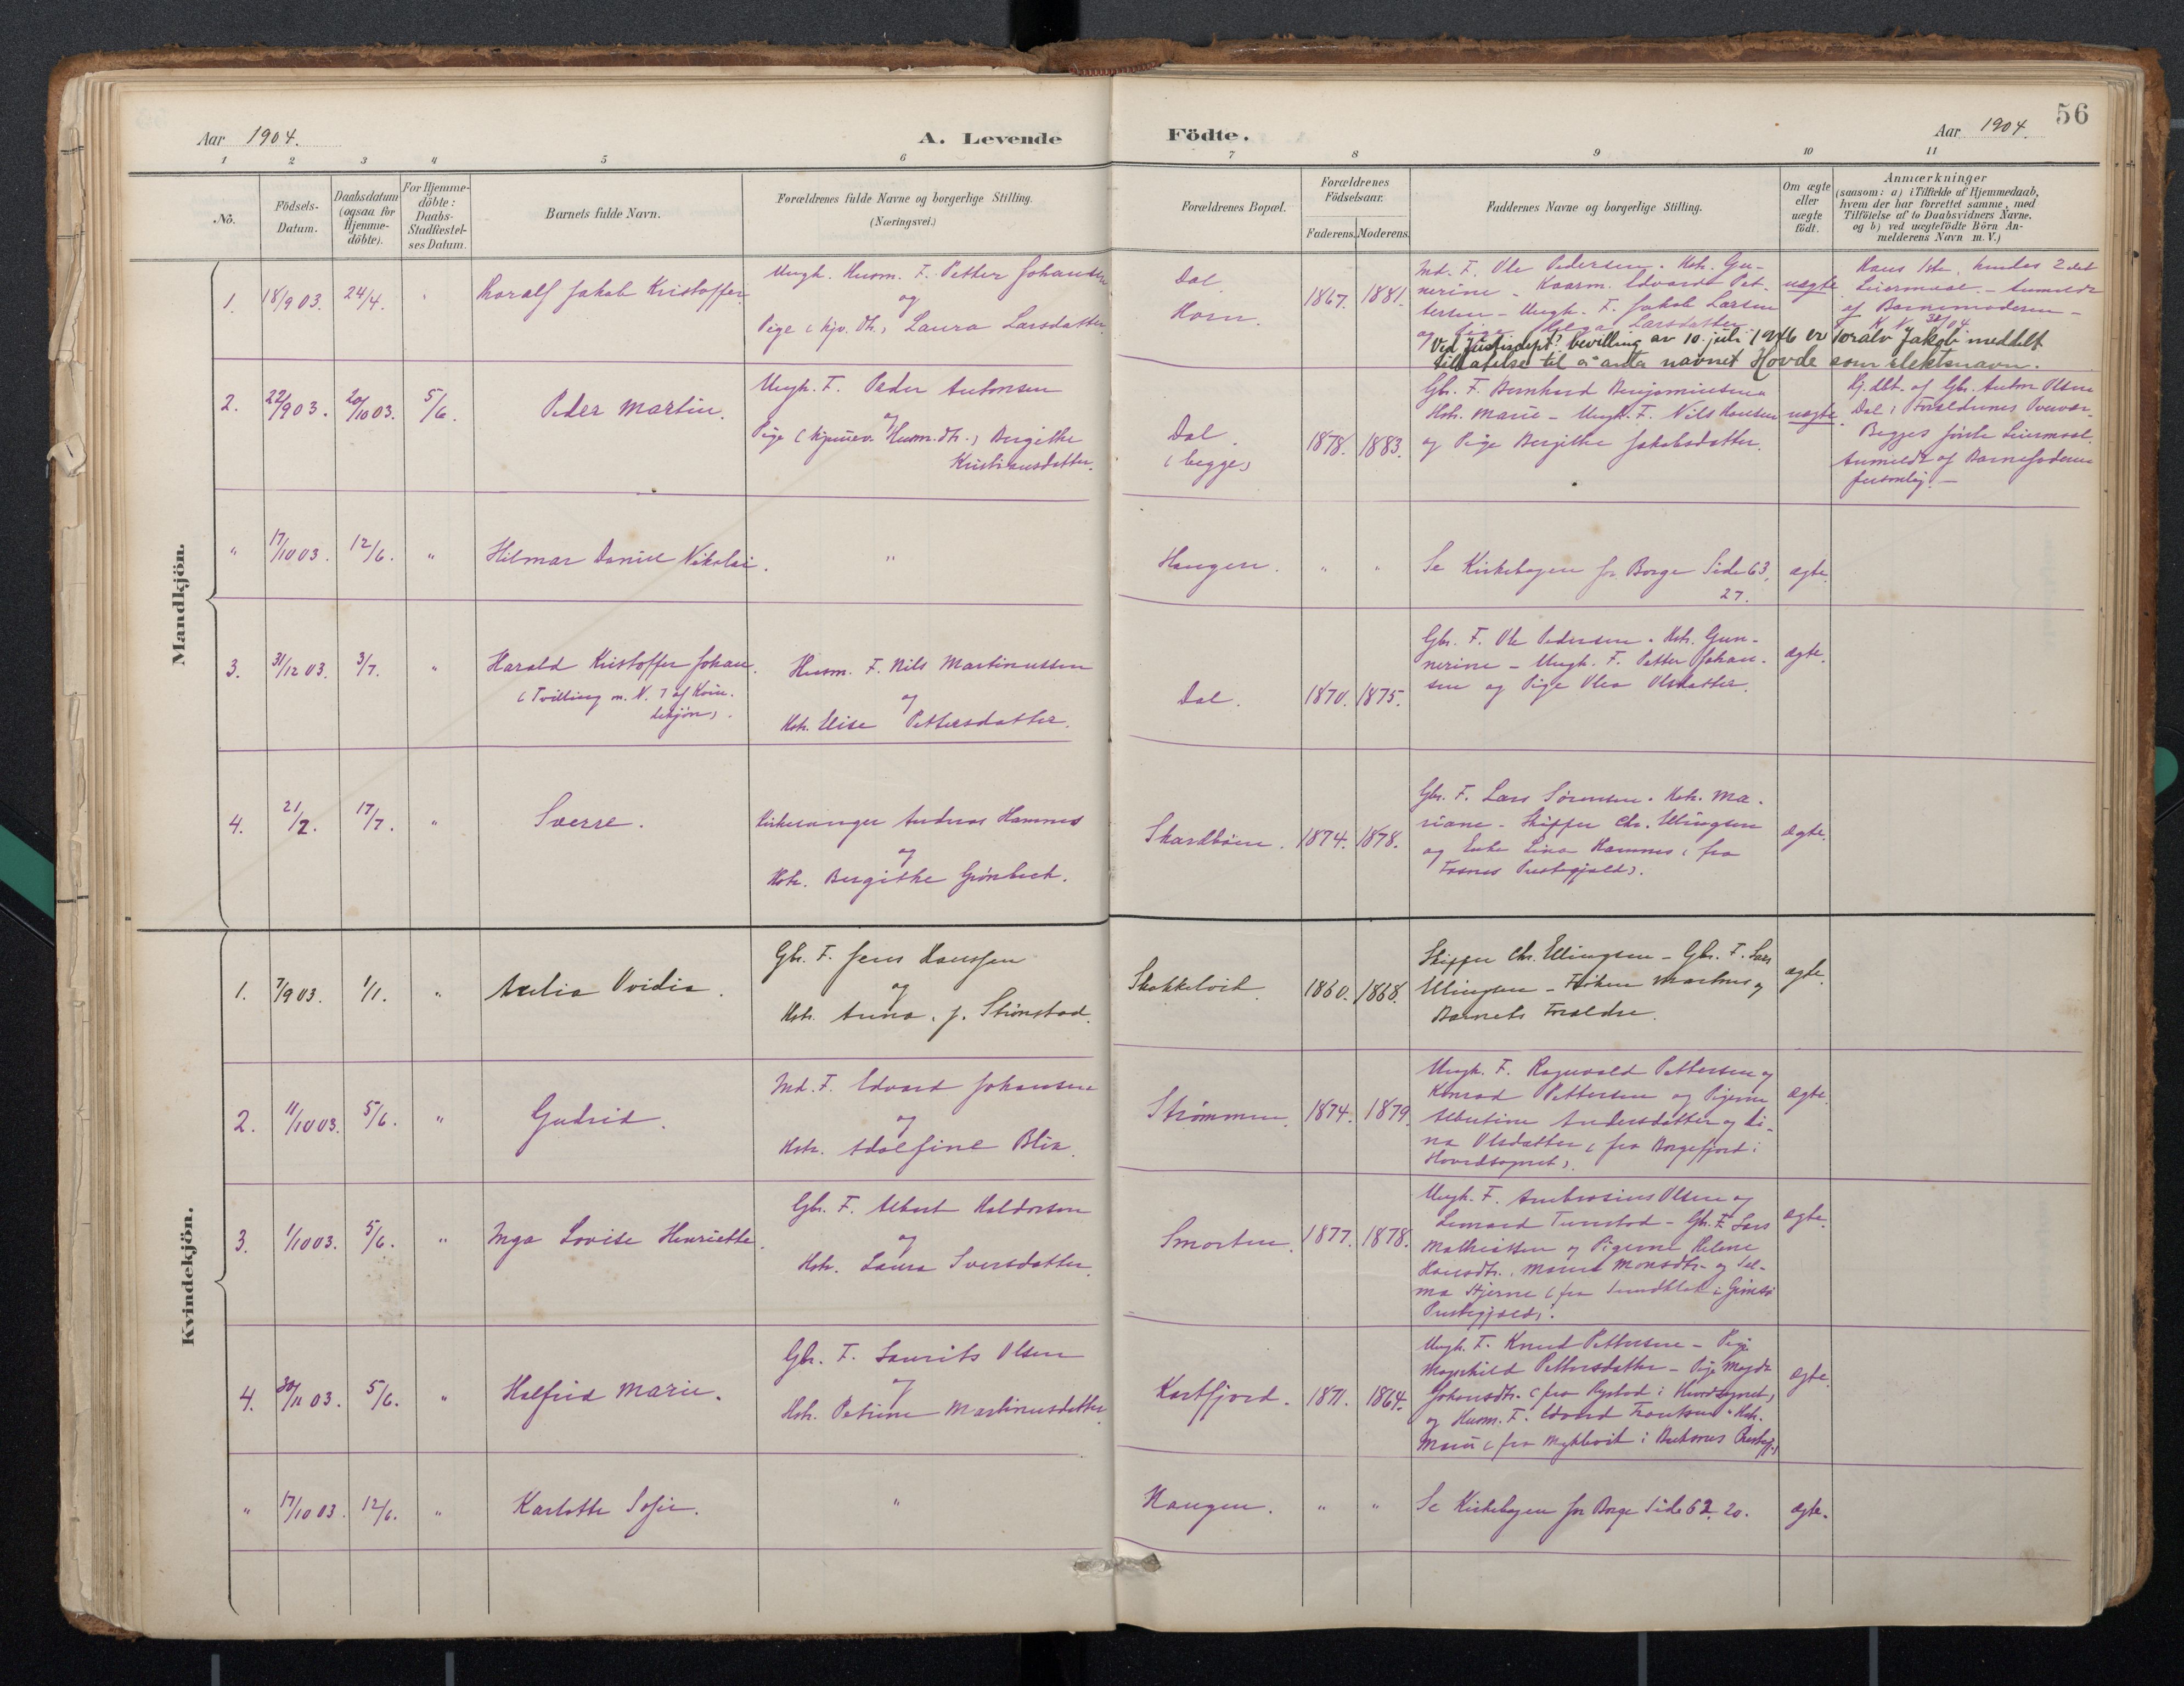 56
Aar 1904.
A. Levende
Födte.
Aar 1904.
1 2 3 4 5 6 7 8 9 10 11
No.
Födsels-
Datum.
Daabsdatum
(ogsaa for
Hjemme-
döbte).
For Hjemme-
döbte:
Daabs-
Stadfæstel-
ses Datum.
Barnets fulde Navn.
Forældrenes fulde Navne og borgerlige Stilling.
(Næringsvei.)
Forældrenes Bopæl.
Forældrenes
Födselsaar.
Faderens. Moderens.
Faddernes Navne og borgerlige Stilling.
Om ægte
eller
uægte
födt.
Anmærkninger
(saasom: a) i Tilfælde af Hjemmedaab,
hvem der har forrettet samme, med
Tilföielse af to Daabsvidners Navne.
og b) ved uægtefödte Börn An-
melderens Navn m. V.)
Mandkjön.
1. 18/9 03. 24/4. "
Thoralf Jakob Kristoffer.
Ungk. Husm. F. Petter Johansen
og
Pige (hjv. dtr.) Laura Larsdatter.
Dal
Horn.
1867. 1881.
Ind. F. Ole Pedersen. Hstr. Gu-
nerine - Kaarm. Edvardt Pet-
tersen - Ungk. F. Jakob Larsen
og Pige Larsdatter
uægte
Hans 1ste, hendes 2det
Leiermaal. - Anmeldt
af Barnemoderen -
Ved Justisdept! bevilling av 10. juli 1946 er Toralv Jakob meddelt
tillatelse til å anta navnet Hovde som slektsnavn.
2. 22/9 03. 20/10 03. 5/6.
Peder Martin.
Ungk. F. Peder Antonsen
og
Pige (hjemmev. Husm. dtr.) Bergithe
Kristiansdatter.
Dal.
(begge)
1878. 1883.
Gbr. F. Bernhard Benjaminsen
Hstr. Marie - Ungk. F. Nils Hansen
og Pige Bergithe Jakobsdatter.
uægte.
Hj. dbt. af Gbr. Anton Olsen
Dal i Forældrenes Overvær.
Begges første Leiermaal.
Anmeldt af Barnefaderen
personlig. -
" 17/10 03. 12/6. "
Hilmar Daniel Nikolai.
"
Haugen. " "
Se Kirkebogen for Borge Side 63,
27.
ægte.
3. 31/12 03. 3/7. "
Harald Kristoffer Johan.
(Tvilling m. N. 7 af Kvin-
dekjøn).
Husm. F. Nils Martinussen
og
Hstr. Elise Pettersdatter.
Dal.
1870. 1875.
Gbr. F. Ole Pedersen. Hstr. Gun-
nerine - Ungk. F. Petter Johan-
sen og Pige Olea Olsdatter.
ægte.
4. 21/2. 17/7. "
Sverre.
Kirkesanger Andreas Hamnes
og
Hstr. Bergithe Grønbech.
Skardbøen.
1874. 1878.
Gbr. F. Lars Sørensen. Hstr. Ma-
riane - Skipper Chr. Ellingsen
og Enke Lina Hamnes (fra
Fosnes Prestegjeld).
ægte.
Kvindekjön.
1. 7/9 03. 1/1. "
Axelia Ovidia.
Gbr. F. Jens Hanssen
og
Hstr. Anna, f. Stinstad.
Skokkelvik.
1860. 1868.
Skipper Chr. Ellingsen - Gbr. F. Lars
Ellingsen - Frøken og
Barnets Forældre.
ægte.
2. 11/10 03. 5/6. "
Gudrid.
Ind. F. Edvard Johansen
og
Hstr. Adolfine Blix.
Strømmen.
1874. 1879.
Ungk. F. Ragnvald Pettersen og
Konrad Pettersen og Pigerne
Albertine Andersdatter og Li-
na Olsdatter (fra Borgefjord i
Hovedsognet).
ægte.
3. 1/10 03. 5/6. "
Inga Lovise Henriette.
Gbr. F. Albert Haldorsen
og
Hstr. Laura Sversdatter.
Smorten.
1877. 1878.
Ungk. F. Ambrosius Olsen og
Leonard Tunstad - Gbr. F. Lars
Mathiassen og Pigerne Helene
Hansdtr., Monsdtr. og Sel-
ma Stjerne (fra Sundklak i Gimsø
Prestegjeld).
ægte.
4. 30/11 03. 5/6. "
Halfrid Marie.
Gbr. F. Laurits Olsen
og
Hstr. Petrine Martinusdatter.
Kartfjord.
1871. 1864.
Ungk. F. Knud Pettersen - Pige
Magnhild Pettersdatter - Pige Magda
Johansdtr. (fra Rystad i Hovedsognet)
og Husm. F. Edvard Frantsen. Hstr.
Marie (fra i Buksnes Presteg.)
ægte.
" 17/10 03. 12/6. "
Karlotte Sofie.
"
Haugen. " "
Se Kirkebogen for Borge Side 62. 20.
ægte.